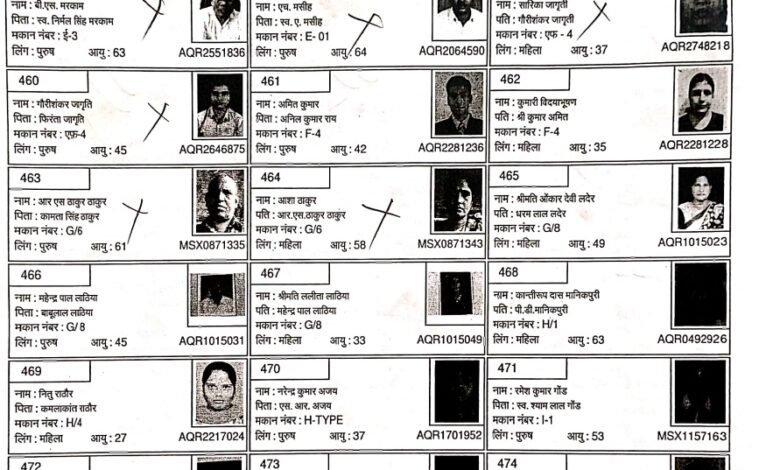 नाम : बी.एस. मरकाम
पिता : स्व. निर्मल सिंह मरकाम
मकान नंबर : ई-3
लिंग : पुरुष आयु : 63 AQR2551836
नाम : एच. मसीह
पिता : स्व. ए. मसीह
मकान नंबर : E- 01
लिंग : पुरुष आयु : 64 AQR2064590
नाम : सारिका जागृती
पति : गौरीशंकर जागृती
मकान नंबर : एफ - 4
लिंग : महिला आयु : 37 AQR2748218
460
नाम : गौरीशंकर जागृति
पिता : फिरंता जागृति
मकान नंबर : एफ़-4
लिंग : पुरुष आयु : 45 AQR2646875
461
नाम : अमित कुमार
पिता : अनिल कुमार राय
मकान नंबर : F-4
लिंग : पुरुष आयु : 42 AQR2281236
462
नाम : कुमारी विदयाभूषण
पति : श्री कुमार अमित
मकान नंबर : F-4
लिंग : महिला आयु : 35 AQR2281228
463
नाम : आर एस ठाकुर ठाकुर
पिता : कामता सिंह ठाकुर
मकान नंबर : G/6
लिंग : पुरुष आयु : 61 MSX0871335
464
नाम : आशा ठाकुर
पति : आर.एस.ठाकुर ठाकुर
मकान नंबर : G/6
लिंग : महिला आयु : 58 MSX0871343
465
नाम : श्रीमति ओंकार देवी लदेर
पति : धरम लाल लदेर
मकान नंबर : G/8
लिंग : महिला आयु : 49 AQR1015023
466
नाम : महेन्द्र पाल लाठिया
पिता : बाबूलाल लाठिया
मकान नंबर : G/ 8
लिंग : पुरुष आयु : 45 AQR1015031
467
नाम : श्रीमति ललीता लाठिया
पति : महेन्द्र पाल लाठिया
मकान नंबर : G/8
लिंग : महिला आयु : 33 AQR1015049
468
नाम : कान्तीरूप दास मानिकपुरी
पति : पी.डी.मानिकपुरी
मकान नंबर : H/1
लिंग : महिला आयु : 63 AQR0492926
469
नाम : नितु राठौर
पिता : कमलाकांत राठौर
मकान नंबर : H/4
लिंग : महिला आयु : 27 AQR2217024
470
नाम : नरेन्द्र कुमार अजय
पिता : एस. आर. अजय
मकान नंबर : H-TYPE
लिंग : पुरुष आयु : 37 AQR1701952
471
नाम : रमेश कुमार गोंड
पिता : स्व. श्याम लाल गोंड
मकान नंबर : I-1
लिंग : पुरुष आयु : 53 MSX1157163
472
473
474